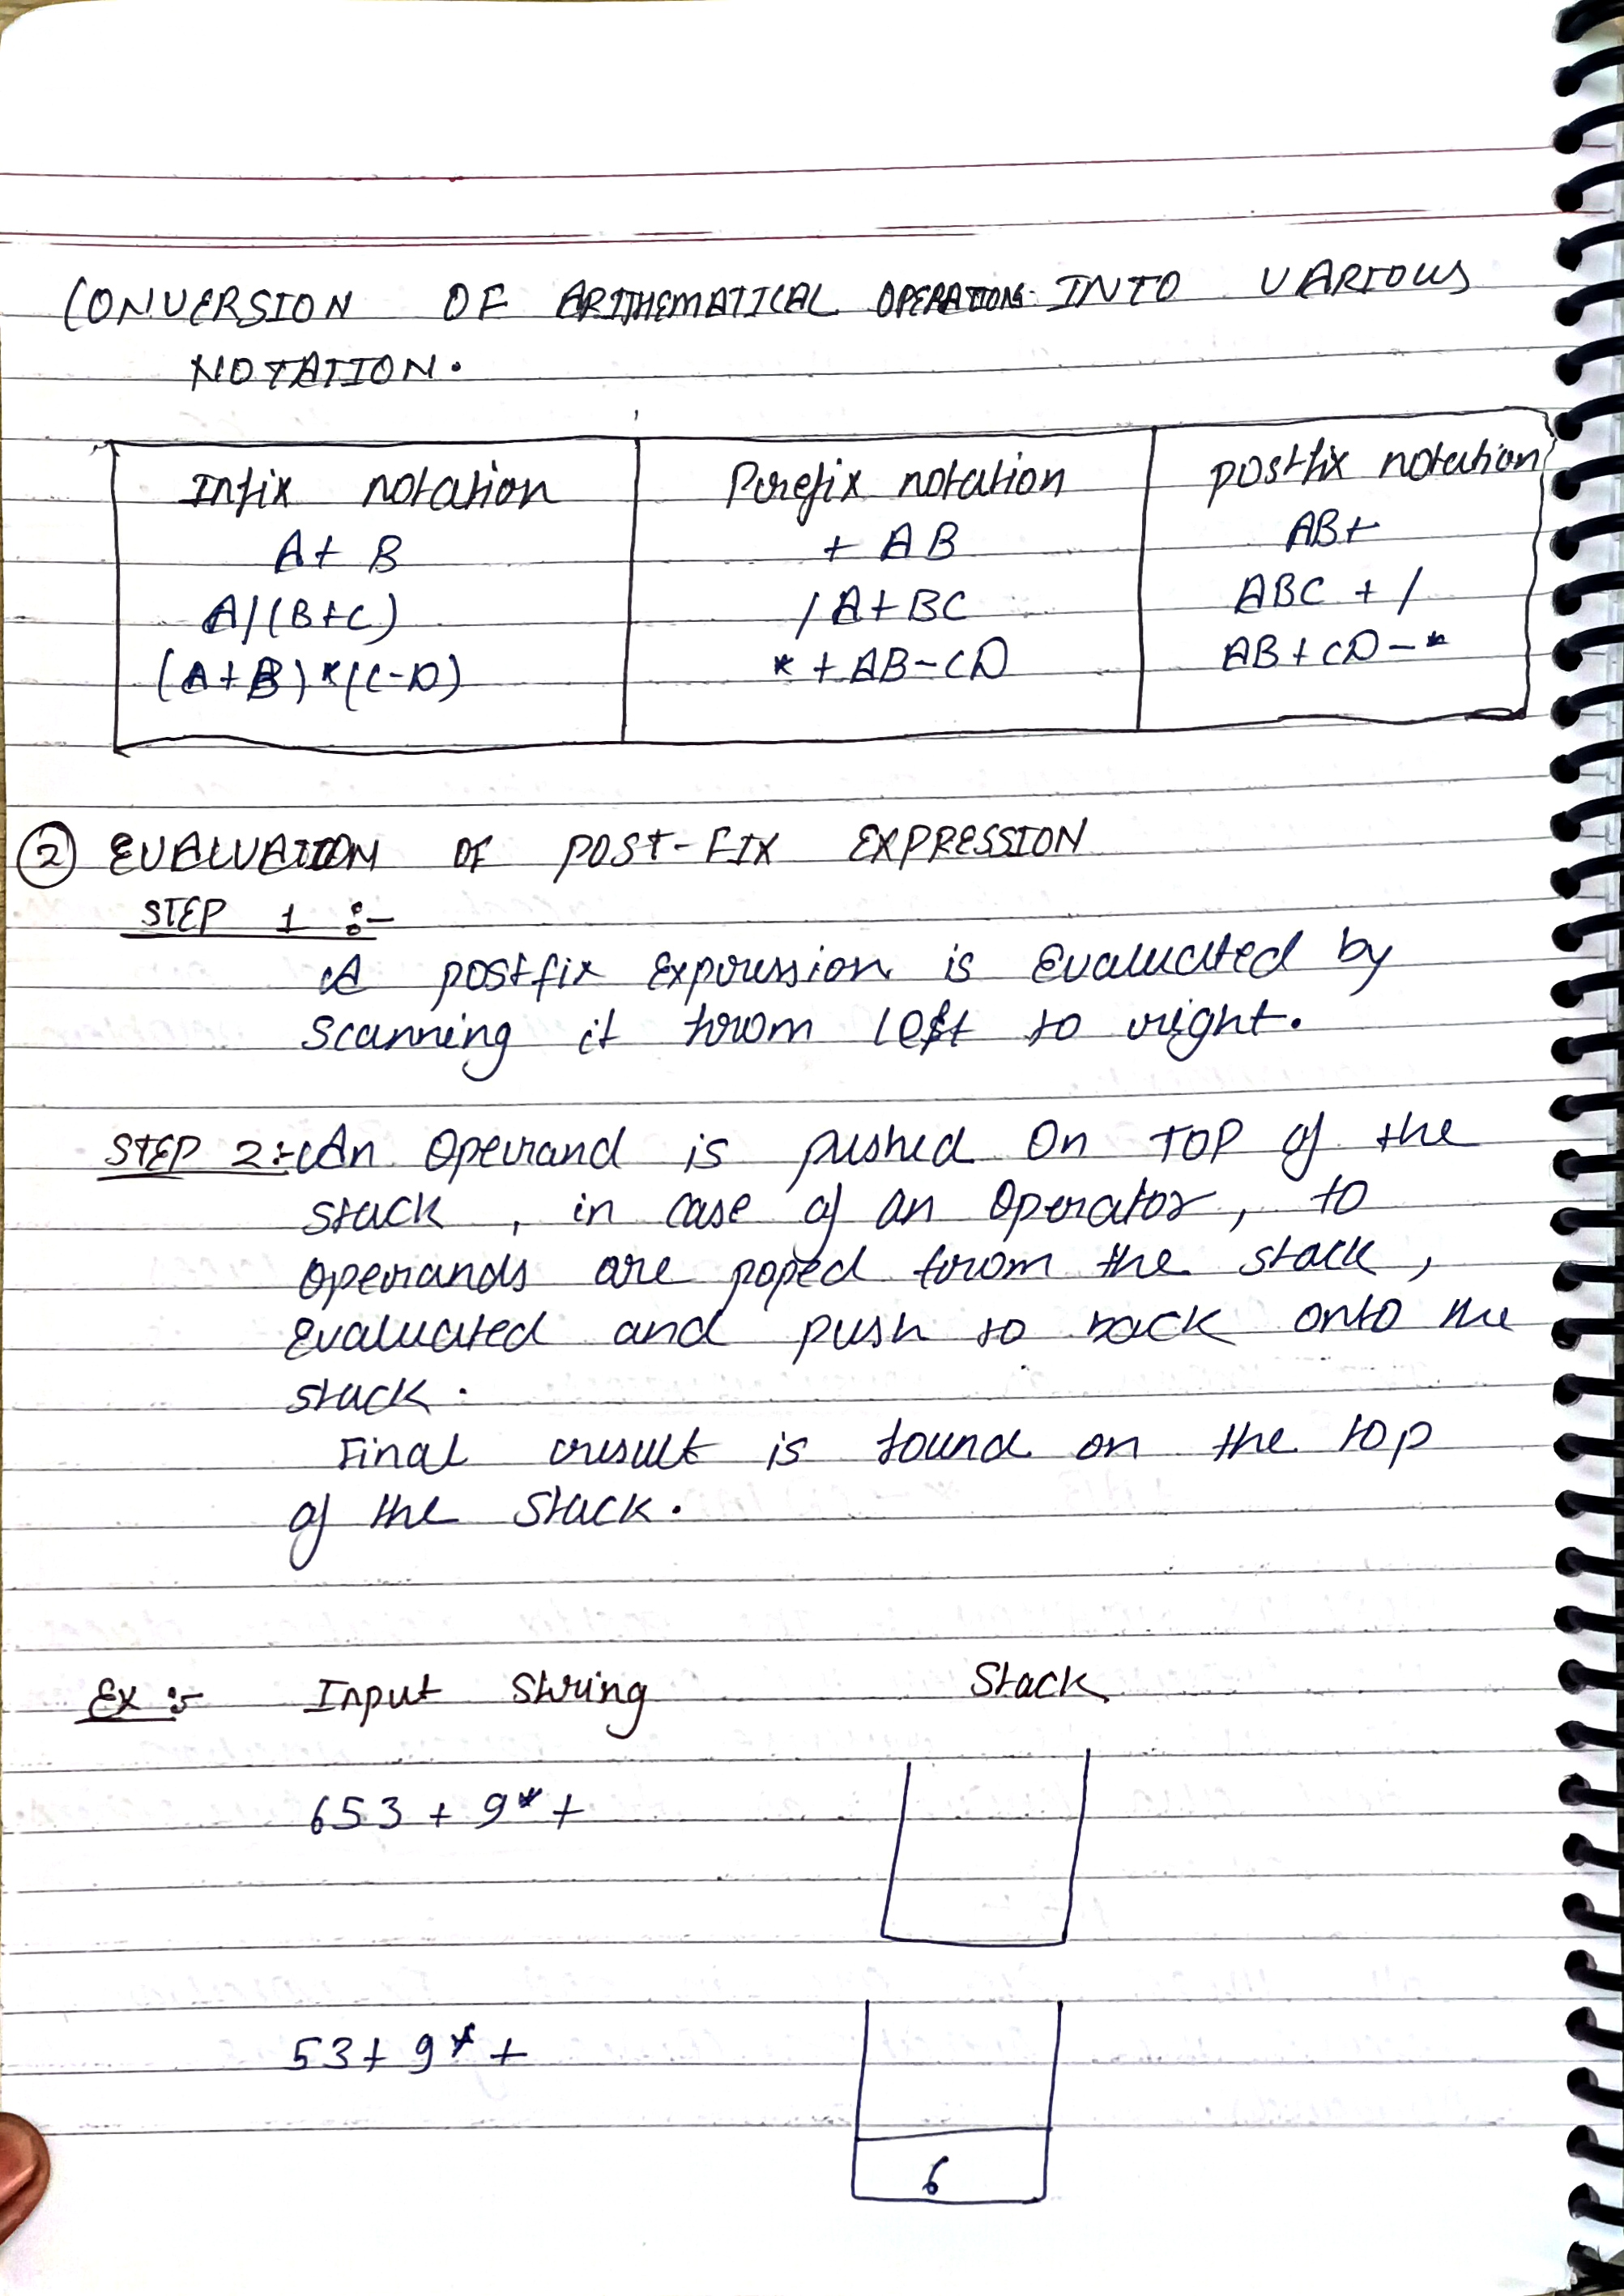 CONVERSION OF ARITHEMATICAL OPERATIONS INTO VARIOUS
NOTATION.
Infix notation Prefix notation postfix notation
A+ B + AB AB+
A/(B+C) /A+BC ABC +/
(A+B)*(C-D) *+AB-CD AB+CD-*
② EVALUATION OF POST-FIX EXPRESSION
STEP 1 :-
A postfix expression is evaluated by
scanning it from left to right.
STEP 2:- An operand is pushed on TOP of the
stack , in case of an operator, to
operands are poped from the stack,
evaluated and push to back onto the
stack.
Final result is found on the top
of the stack.
Ex :- Input string Stack
653 + 9*+
53+ 9*+
6